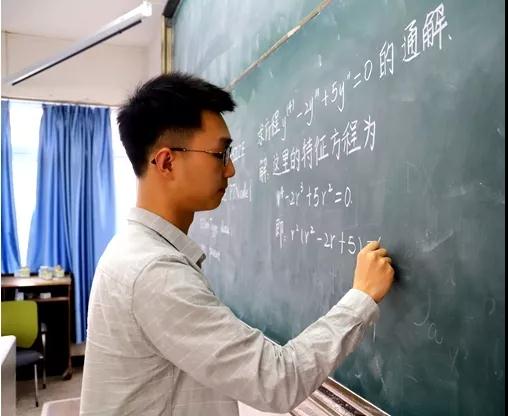 求方程 y⁽⁴⁾-2y'''+5y''=0 的通解.
解:这里的特征方程为
r⁴-2r³+5r²=0.
即: r²(r²-2r+5)=